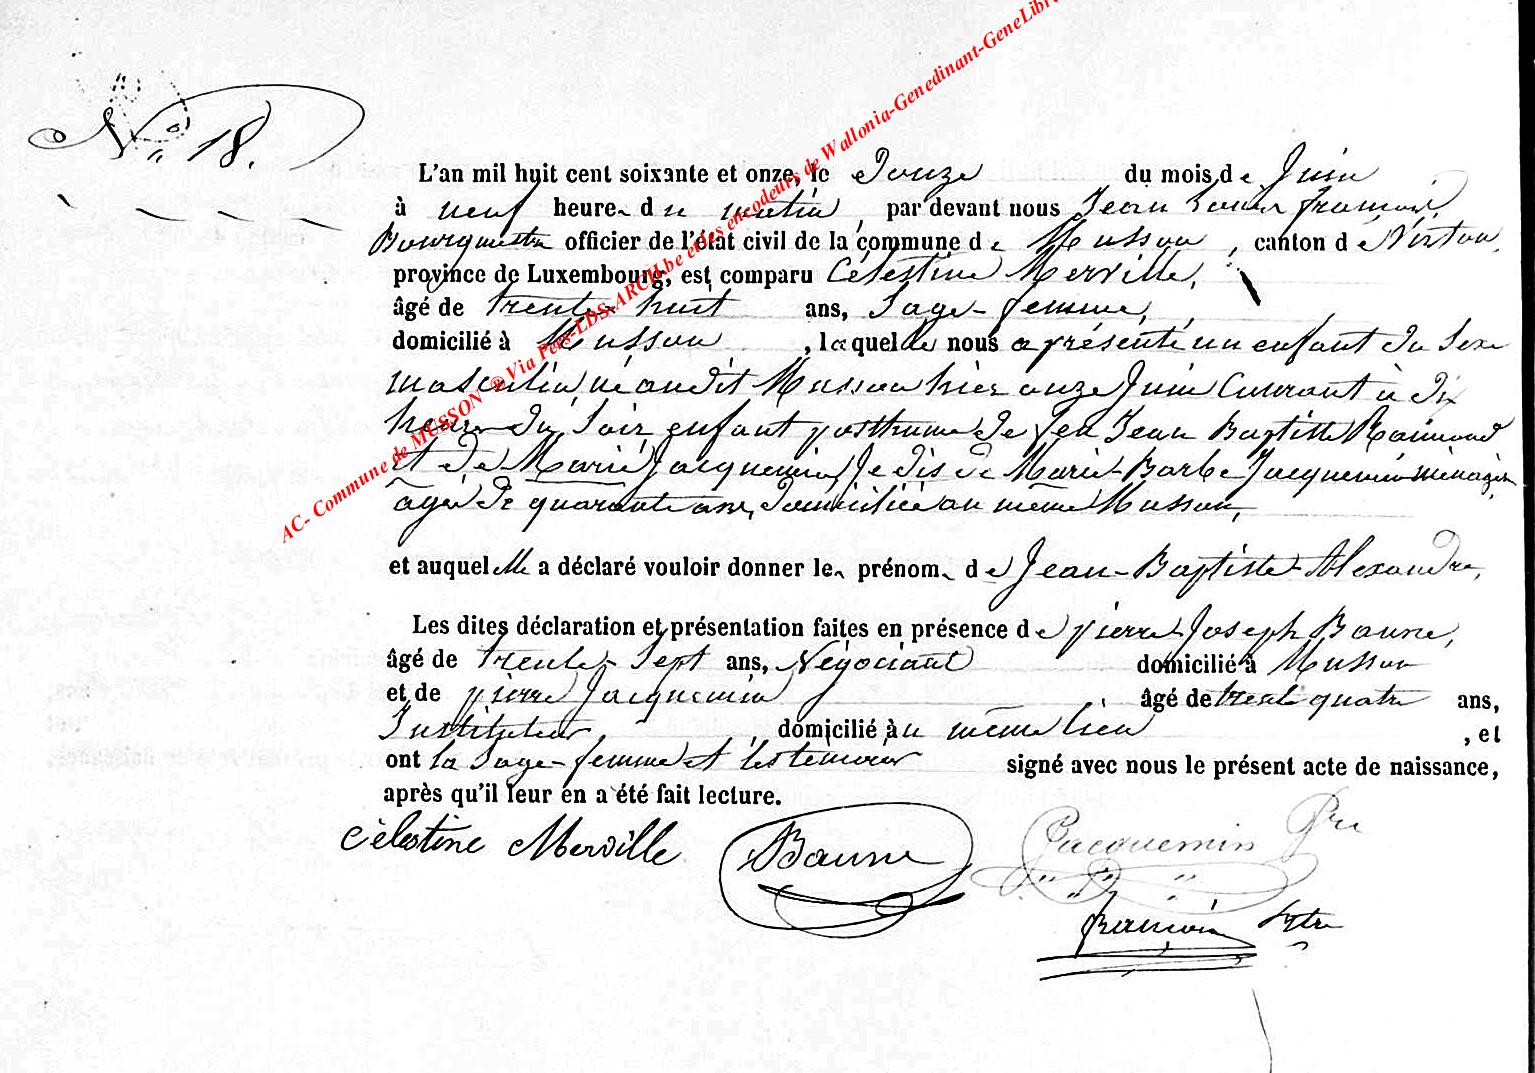 AC- Commune de MUSSON ® Via Pers-LDS-ARCH.be et les encodeurs de Wallonia-Genedinant-GeneLibre
N° 18.
L'an mil huit cent soixante et onze, le Douze du mois de Juin
à neuf heures du matin, par devant nous Jean Louis françois,
Bourgmestre officier de l'état civil de la commune de Musson, canton de Virton,
province de Luxembourg, est comparu Célestine Merville,
âgé de trente-huit ans, Sage-femme,
domicilié à Musson, laquelle nous a présenté un enfant du Sexe
masculin, né audit Musson hier onze Juin Courant à dix
heures du Soir, enfant posthume de feu Jean Baptiste Raimond
et de Marie Jacquemin, Je dis de Marie-Barbe Jacquemin ménagère
agée de quarante ans, domiciliée au même Musson,
et auquel elle a déclaré vouloir donner les prénoms de Jean-Baptiste-Alexandre,
Les dites déclaration et présentation faites en présence de pierre-Joseph Baune,
âgé de trente-Sept ans, Négociant domicilié à Musson
et de pierre Jacquemin âgé de trente quatre ans,
Instituteur, domicilié au même lieu, et
ont la Sage-femme et les témoins signé avec nous le présent acte de naissance,
après qu'il leur en a été fait lecture.
Célestine Merville Baune Jacquemin Pre
françois Bgtre